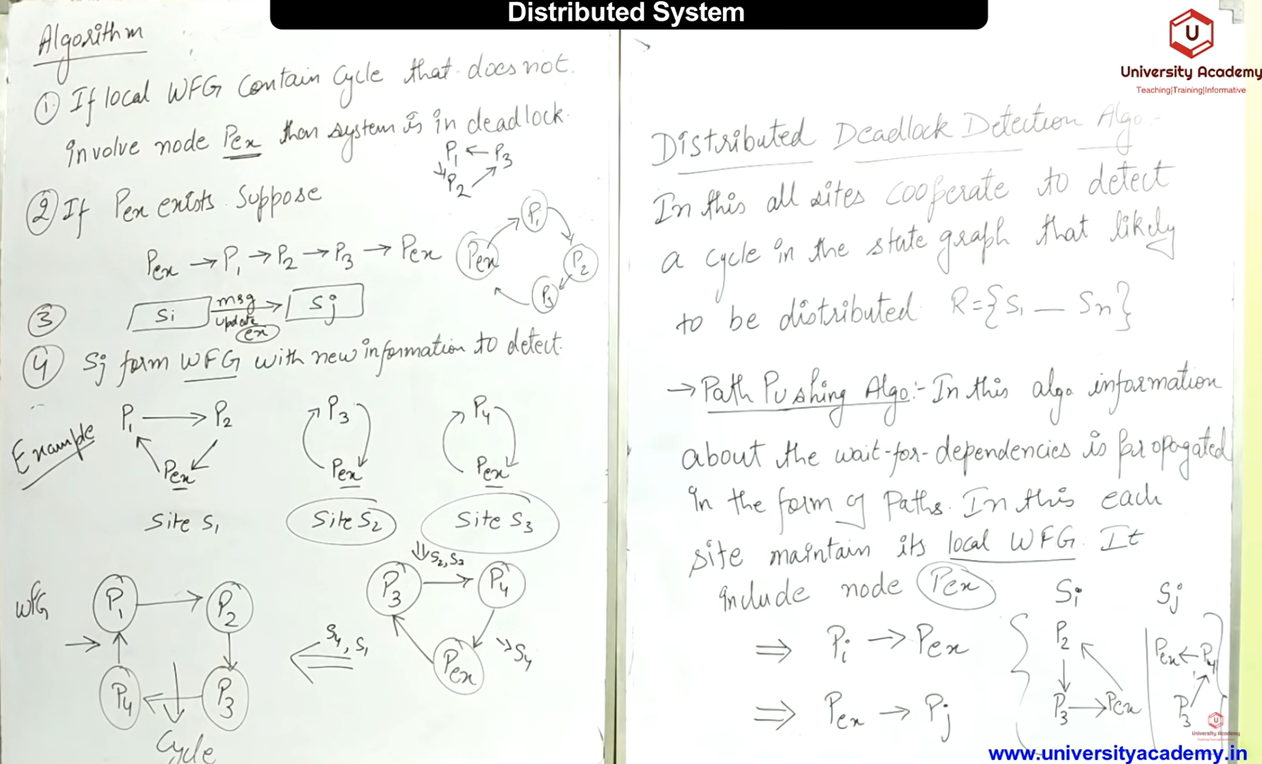 Distributed System
University Academy
Teaching|Training|Informative
Algorithm
① If local WFG contain cycle that does not
involve node Pex than system is in deadlock.
P1 ← P3
P2
② If Pex exists suppose
Pex → P1 → P2 → P3 → Pex
Pex P1 P2 P3
③ Si msg update ex Sj
④ Sj form WFG with new information to detect.
Example
P1 → P2
Pex
Site S1
P3
Pex
Site S2
P4
Pex
Site S3
WFG
P1 → P2
P4 ← P3
Cycle
S4, S1
P3 → P4
Pex
S4
Distributed Deadlock Detection Algo:-
In this all sites cooperate to detect
a cycle in the state graph that likely
to be distributed R={S1 — Sn}
→ Path Pushing Algo:- In this algo information
about the wait-for-dependencies is propogated
in the form of Paths. In this each
site maintain its local WFG. It
include node Pex
⇒ Pi → Pex
⇒ Pex → Pj
Si
P2
P3 → Pex
Sj
Pex ← P4
P3
University Academy
www.universityacademy.in